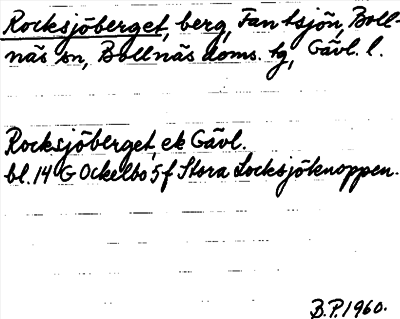 Rocksjöberget, berg, Fantsjön, Boll-
näs sn, Bollnäs doms. hg, Gävl. l.
Rocksjöberget, ek Gävl.
bl. 14 G Ockelbo 5 f Stora Locksjöknoppen.
B.P. 1960.